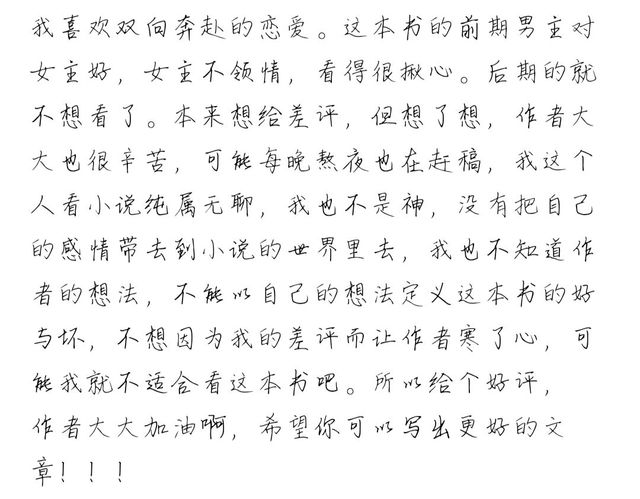 我喜欢双向奔赴的恋爱。这本书的前期男主对
女主好，女主不领情，看得很揪心。后期的就
不想看了。本来想给差评，但想了想，作者大
大也很辛苦，可能每晚熬夜也在赶稿，我这个
人看小说纯属无聊，我也不是神，没有把自己
的感情带去到小说的世界里去，我也不知道作
者的想法，不能以自己的想法定义这本书的好
与坏，不想因为我的差评而让作者寒了心，可
能我就不适合看这本书吧。所以给个好评，
作者大大加油啊，希望你可以写出更好的文
章！！！